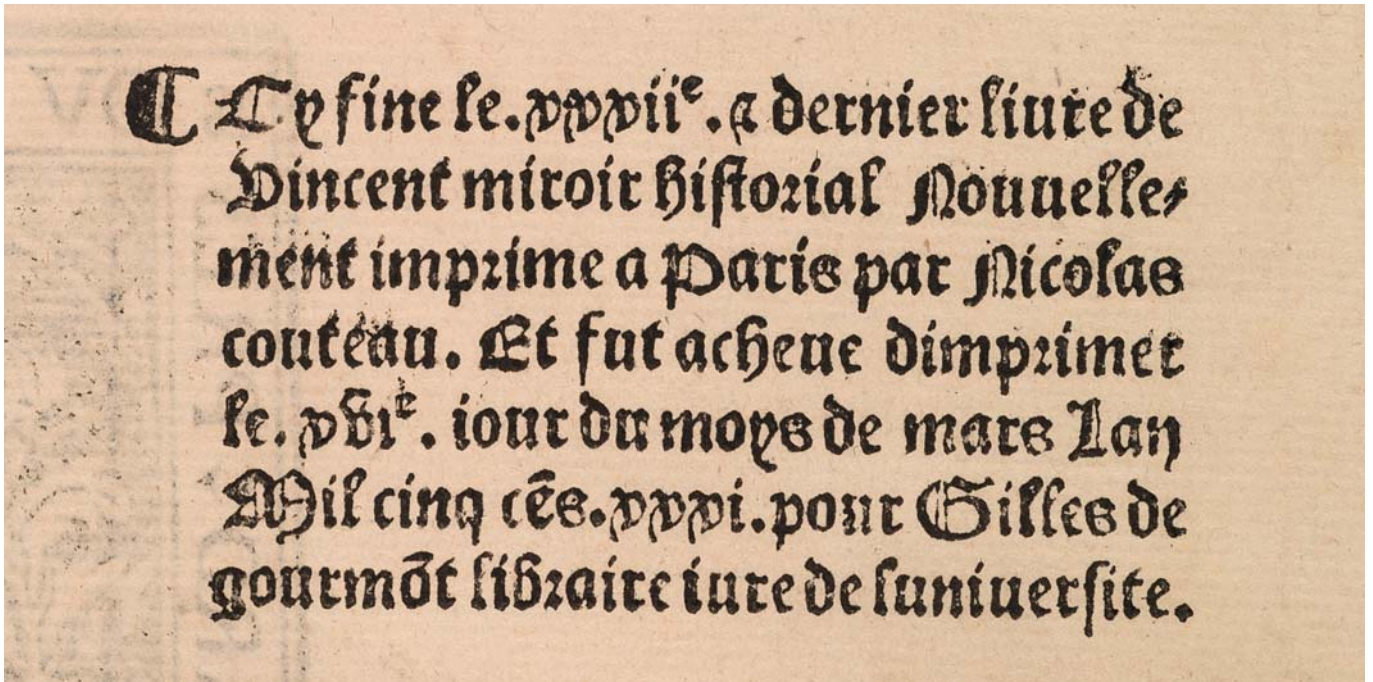 ⁋ Cy fine le .xxxii^e. ⁊ dernier liure de
Vincent miroir historial Nouuelle⸗
ment imprime a Paris par Nicolas
couteau. Et fut acheue dimprimer
le .xvi^e. iour du moys de mars Lan
Mil cinq cẽs .xxxi. pour Gilles de
gourmõt libraire iure de luniuersite.